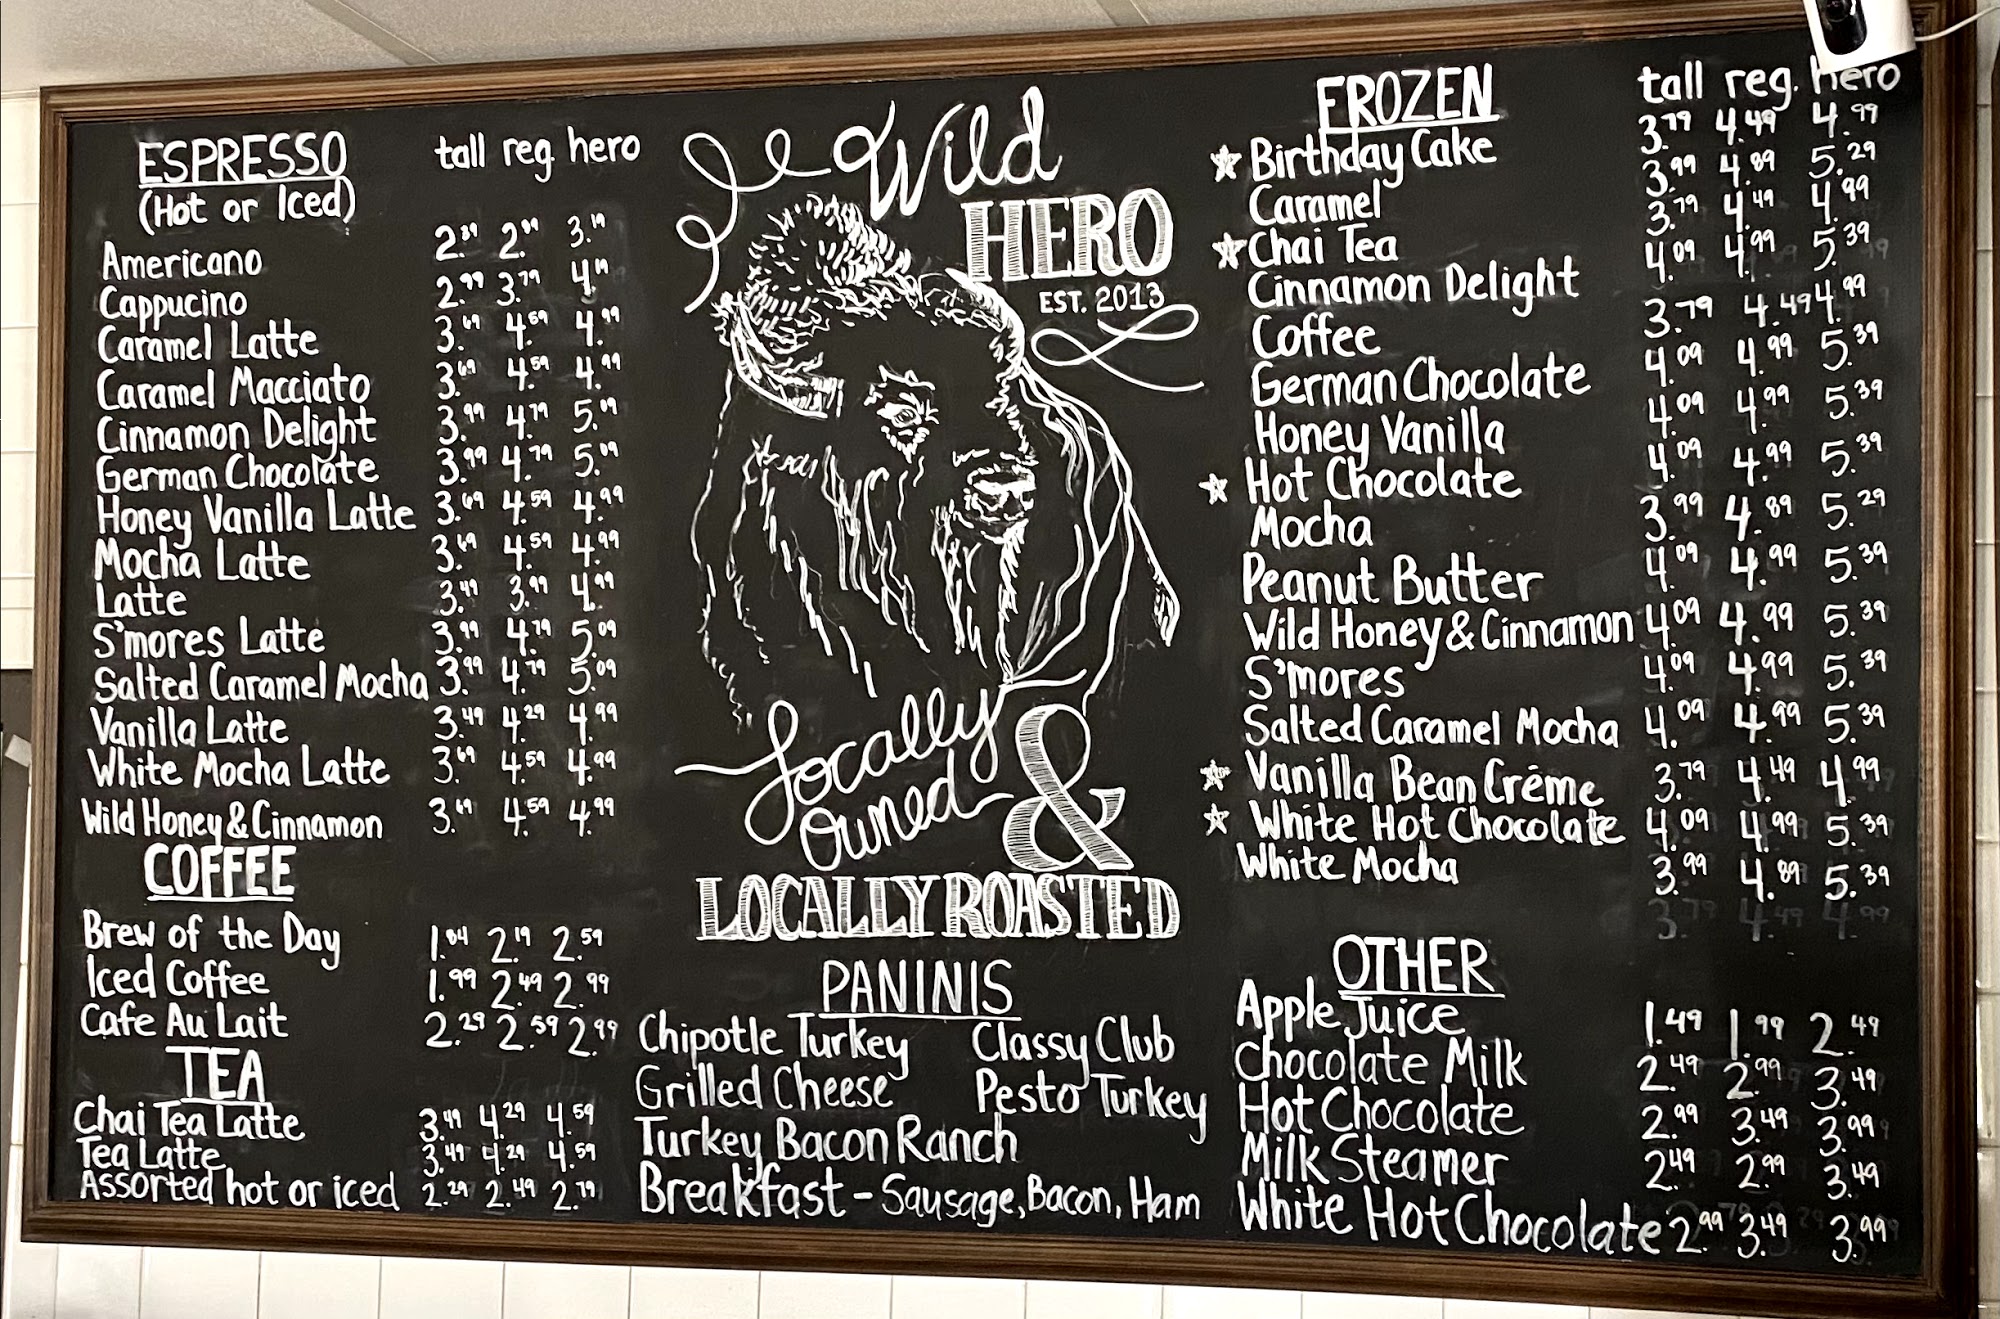 ESPRESSO tall reg. hero
(Hot or Iced)
Americano 2.39 2.89 3.19
Cappucino 2.99 3.79 4.19
Caramel Latte 3.69 4.59 4.99
Caramel Macciato 3.69 4.59 4.99
Cinnamon Delight 3.99 4.79 5.09
German Chocolate 3.99 4.79 5.09
Honey Vanilla Latte 3.69 4.59 4.99
Mocha Latte 3.69 4.59 4.99
Latte 3.49 3.99 4.99
S'mores Latte 3.99 4.79 5.09
Salted Caramel Mocha 3.99 4.79 5.09
Vanilla Latte 3.49 4.29 4.99
White Mocha Latte 3.69 4.59 4.99
Wild Honey & Cinnamon 3.69 4.59 4.99
COFFEE
Brew of the Day 1.84 2.19 2.59
Iced Coffee 1.99 2.49 2.99
Cafe Au Lait 2.29 2.59 2.99
TEA
Chai Tea Latte 3.49 4.29 4.59
Tea Latte 3.49 4.29 4.59
Assorted hot or iced 2.29 2.49 2.79
Wild
HERO
EST. 2013
Locally
Owned
&
LOCALLY ROASTED
PANINIS
Chipotle Turkey Classy Club
Grilled Cheese Pesto Turkey
Turkey Bacon Ranch
Breakfast - Sausage, Bacon, Ham
FROZEN tall reg. hero
Birthday Cake 3.79 4.49 4.99
Caramel 3.99 4.89 5.29
Chai Tea 3.79 4.49 4.99
Cinnamon Delight 4.09 4.99 5.39
Coffee 3.79 4.49 4.99
German Chocolate 4.09 4.99 5.39
Honey Vanilla 4.09 4.99 5.39
Hot Chocolate 4.09 4.99 5.39
Mocha 3.99 4.89 5.29
Peanut Butter 4.09 4.99 5.39
Wild Honey & Cinnamon 4.09 4.99 5.39
S'mores 4.09 4.99 5.39
Salted Caramel Mocha 4.09 4.99 5.39
Vanilla Bean Crēme 3.79 4.49 4.99
White Hot Chocolate 4.09 4.99 5.39
White Mocha 3.99 4.89 5.39
OTHER
Apple Juice 1.49 1.99 2.49
Chocolate Milk 2.49 2.99 3.49
Hot Chocolate 2.99 3.49 3.99
Milk Steamer 2.49 2.99 3.49
White Hot Chocolate 2.99 3.49 3.99